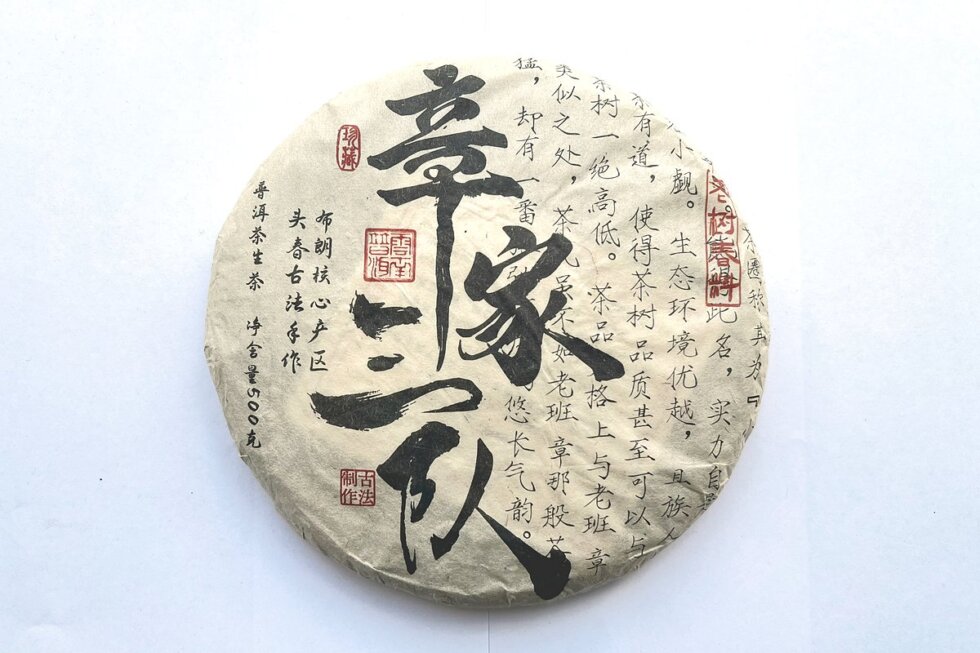 章家三队
珍藏
云南普洱
古法制作
老树春料
布朗核心产区
头春古法手作
普洱茶生茶 净含量500克
其为『
此名，实力自
小觑。生态环境优越，且族
有道，使得茶树品质甚至可以与
茶树一绝高低。茶品 格上与老班章
类似之处，茶 虽不如老班章那般
猛，却有一番 悠长气韵。